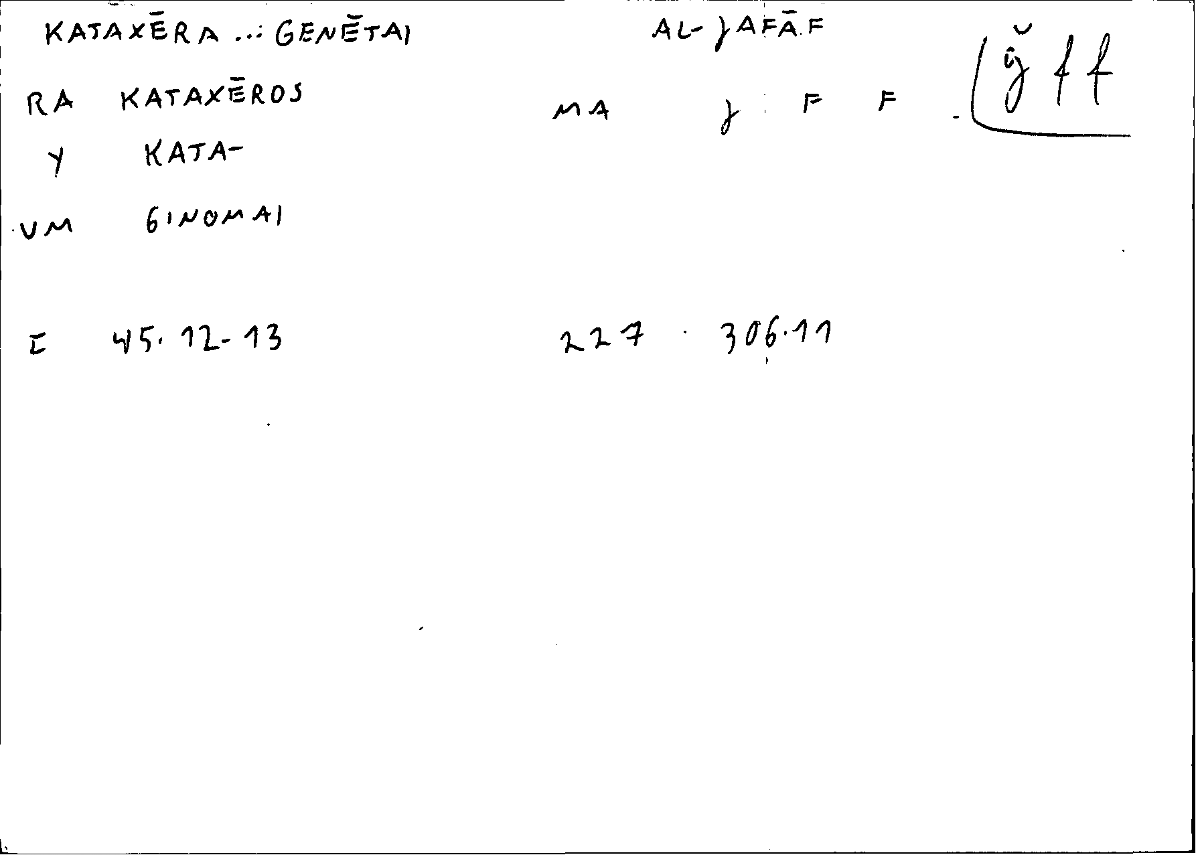 KATAXĒRA ... GENĒTAI AL-JAFĀF
ǧ f f
RA KATAXĒROS MA J F F
Y KATA-
UM GINOMAI
I 45.12-13 227 306.11